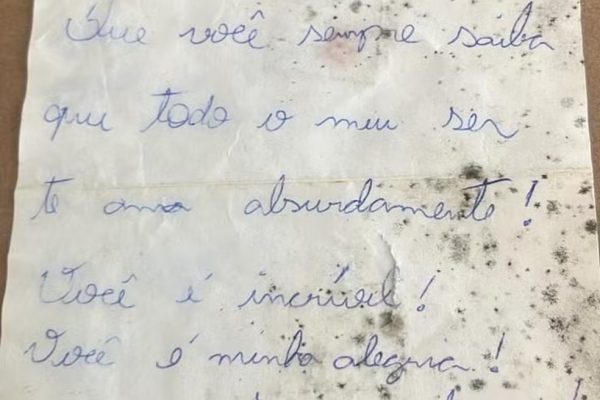 Que você sempre saiba
que todo o meu ser
te ama absurdamente!
Você é incrível!
Você é minha alegria!